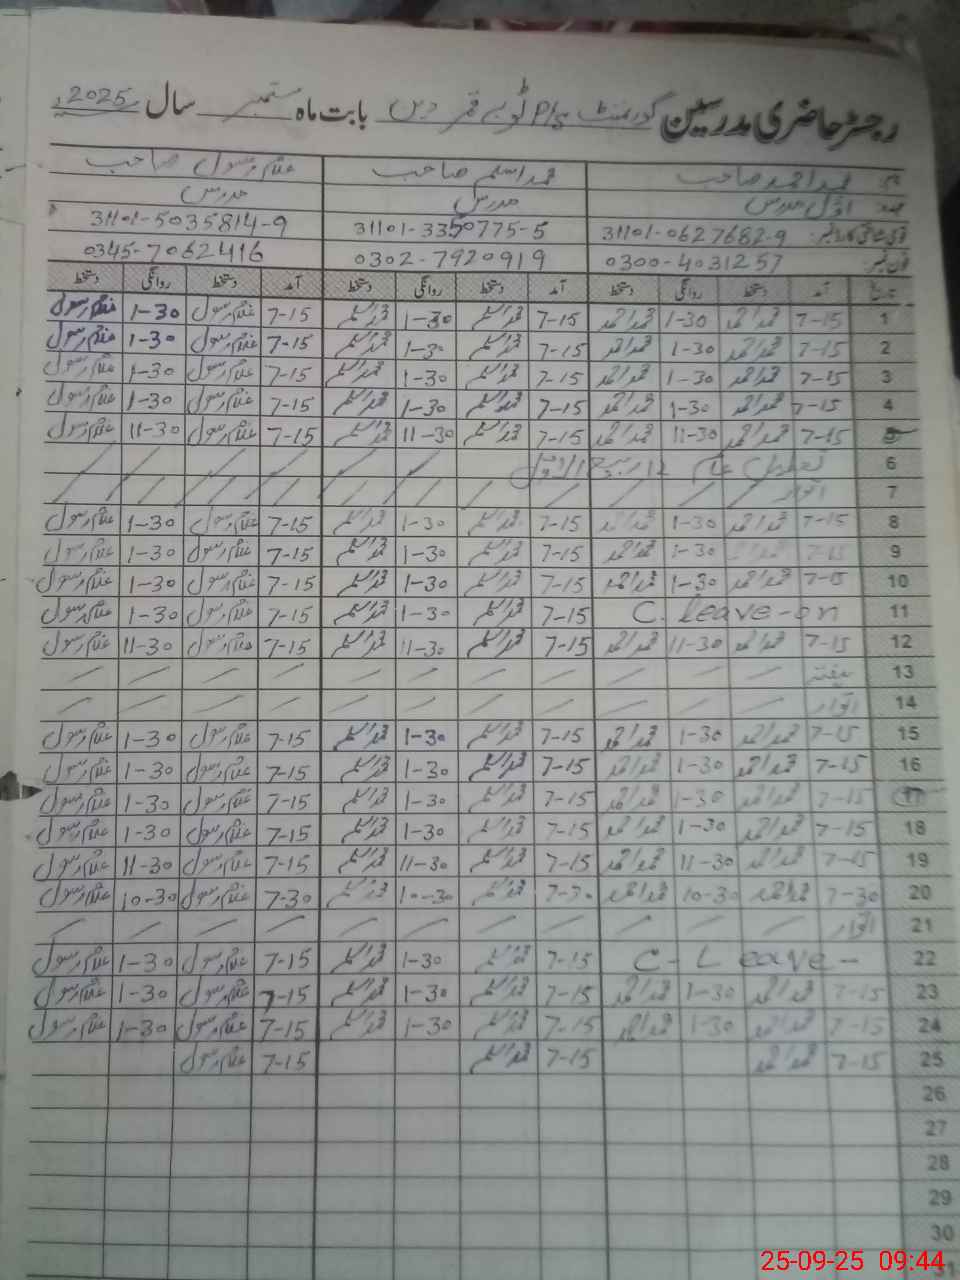 رجسٹر حاضری مدرسین گورنمنٹ P/S ٹوبہ قمر دین بابت ماہ ستمبر سال 2025ء
نام: محمد احمد صاحب محمد اسلم صاحب غلام رسول صاحب
عہدہ: اوّل مدرس مدرس مدرس
قومی شناختی کارڈ نمبر: 31101-0627682-9 31101-3350775-5 31101-5035814-9
فون نمبر: 0300-4031257 0302-7920919 0345-7062416
تاریخ آمد دستخط روانگی دستخط آمد دستخط روانگی دستخط آمد دستخط روانگی دستخط
1 7-15 محمد احمد 1-30 محمد احمد 7-15 محمد اسلم 1-30 محمد اسلم 7-15 غلام رسول 1-30 غلام رسول
2 7-15 محمد احمد 1-30 محمد احمد 7-15 محمد اسلم 1-30 محمد اسلم 7-15 غلام رسول 1-30 غلام رسول
3 7-15 محمد احمد 1-30 محمد احمد 7-15 محمد اسلم 1-30 محمد اسلم 7-15 غلام رسول 1-30 غلام رسول
4 7-15 محمد احمد 1-30 محمد احمد 7-15 محمد اسلم 1-30 محمد اسلم 7-15 غلام رسول 1-30 غلام رسول
5 7-15 محمد احمد 11-30 محمد احمد 7-15 محمد اسلم 11-30 محمد اسلم 7-15 غلام رسول 11-30 غلام رسول
6 تعطیل عام 12 ربیع الاول
7 اتوار
8 7-15 محمد احمد 1-30 محمد احمد 7-15 محمد اسلم 1-30 محمد اسلم 7-15 غلام رسول 1-30 غلام رسول
9 7-15 محمد احمد 1-30 محمد احمد 7-15 محمد اسلم 1-30 محمد اسلم 7-15 غلام رسول 1-30 غلام رسول
10 7-15 محمد احمد 1-30 محمد احمد 7-15 محمد اسلم 1-30 محمد اسلم 7-15 غلام رسول 1-30 غلام رسول
11 C. leave-on 7-15 محمد اسلم 1-30 محمد اسلم 7-15 غلام رسول 1-30 غلام رسول
12 7-15 محمد احمد 11-30 محمد احمد 7-15 محمد اسلم 11-30 محمد اسلم 7-15 غلام رسول 11-30 غلام رسول
13 ہفتہ
14 اتوار
15 7-15 محمد احمد 1-30 محمد احمد 7-15 محمد اسلم 1-30 محمد اسلم 7-15 غلام رسول 1-30 غلام رسول
16 7-15 محمد احمد 1-30 محمد احمد 7-15 محمد اسلم 1-30 محمد اسلم 7-15 غلام رسول 1-30 غلام رسول
17 7-15 محمد احمد 1-30 محمد احمد 7-15 محمد اسلم 1-30 محمد اسلم 7-15 غلام رسول 1-30 غلام رسول
18 7-15 محمد احمد 1-30 محمد احمد 7-15 محمد اسلم 1-30 محمد اسلم 7-15 غلام رسول 1-30 غلام رسول
19 7-15 محمد احمد 11-30 محمد احمد 7-15 محمد اسلم 11-30 محمد اسلم 7-15 غلام رسول 11-30 غلام رسول
20 7-30 محمد احمد 10-30 محمد احمد 7-30 محمد اسلم 10-30 محمد اسلم 7-30 غلام رسول 10-30 غلام رسول
21 اتوار
22 C-Leave- 7-15 محمد اسلم 1-30 محمد اسلم 7-15 غلام رسول 1-30 غلام رسول
23 7-15 محمد احمد 1-30 محمد احمد 7-15 محمد اسلم 1-30 محمد اسلم 7-15 غلام رسول 1-30 غلام رسول
24 7-15 محمد احمد 1-30 محمد احمد 7-15 محمد اسلم 1-30 محمد اسلم 7-15 غلام رسول 1-30 غلام رسول
25 7-15 محمد احمد 7-15 محمد اسلم 7-15 غلام رسول
26
27
28
29
30
31
25-09-25 09:44